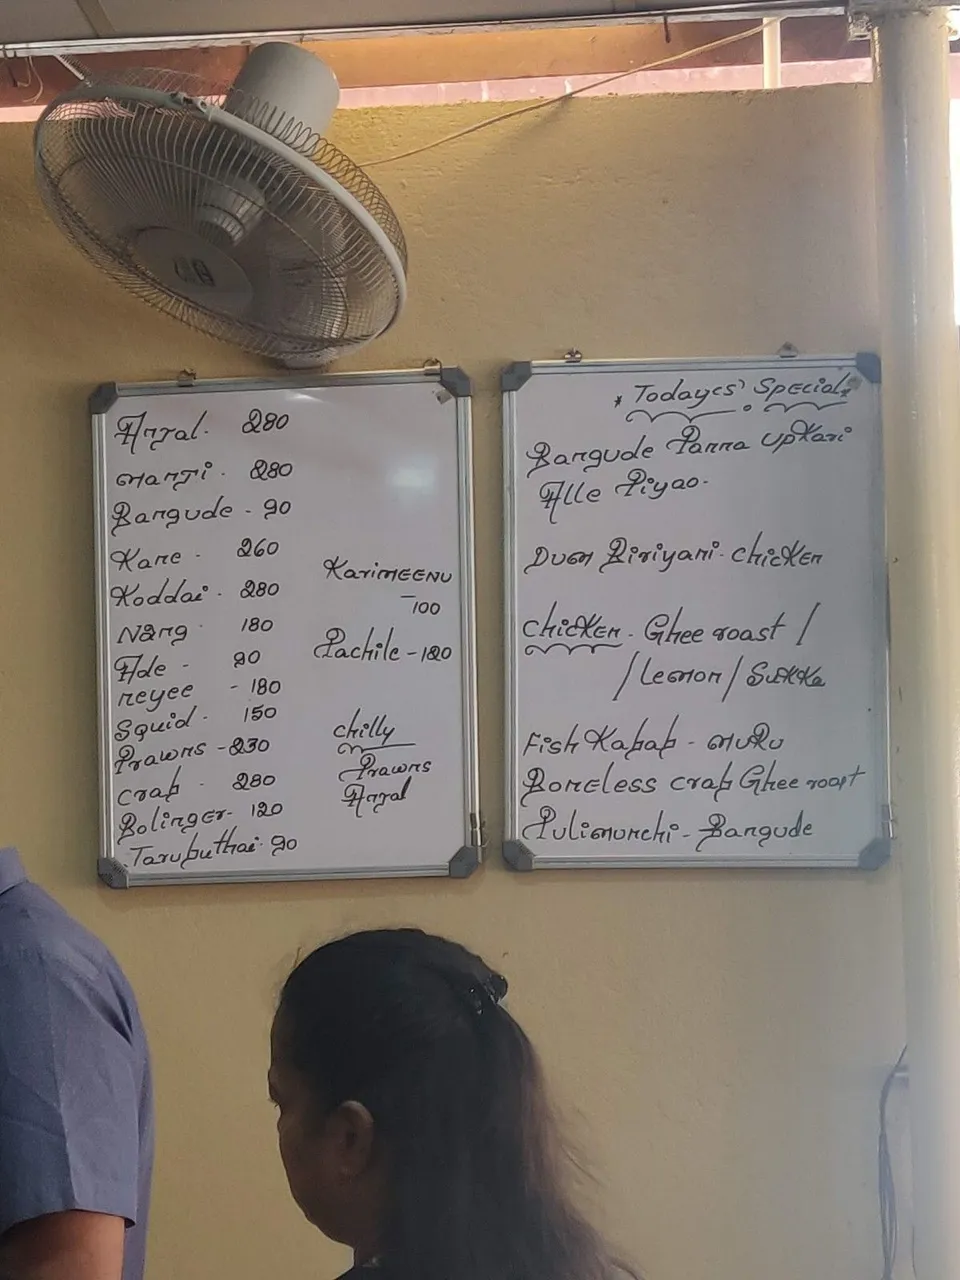 Anjal. 280
manji. 280
Bangude - 90
Kane. 260
Koddai. 280
Nang 180
Ade - 90
neyee - 180
Squid. 150
Prawns - 230
crab. 280
Bolinger - 120
Tarubuthai. 90
KariMEENU
- 100
Pachile - 120
chilly
Prawns
Anjal
* Todayes' Special *
Bangude Panna upKari
Alle Piyao.
Dum Biriyani. chicKEN
chicKEN. Ghee roast /
/ Lemon / SuKKa
Fish Kabab - muRu
BonEless crab Ghee roast
Pulimunchi - Bangude